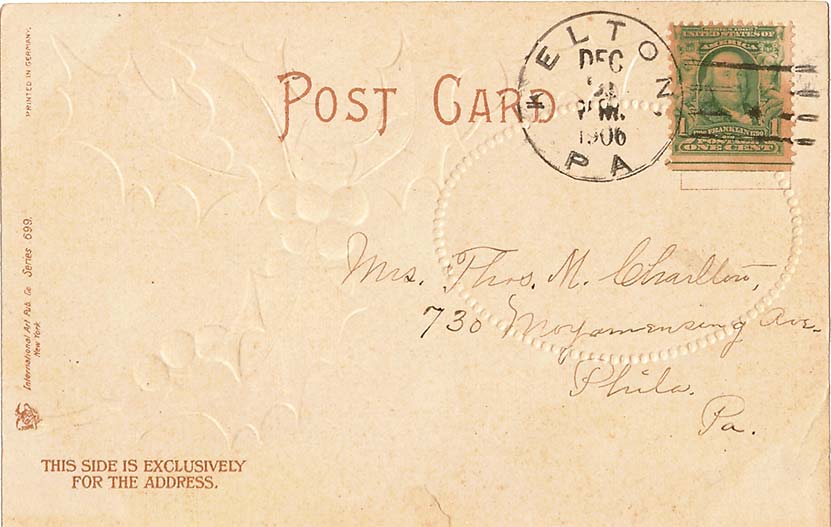 PRINTED IN GERMANY.
POST CARD
KELTON
DEC
31
P M.
1906
PA
SERIES 1902
UNITED STATES OF
AMERICA
1 FRANKLIN 1
POSTAGE
ONE CENT
Mrs. Thos. M. Charlton,
730 Moyamensing Ave.
Phila.
Pa.
International Art Pub. Co. Series 699.
New York
THIS SIDE IS EXCLUSIVELY
FOR THE ADDRESS.